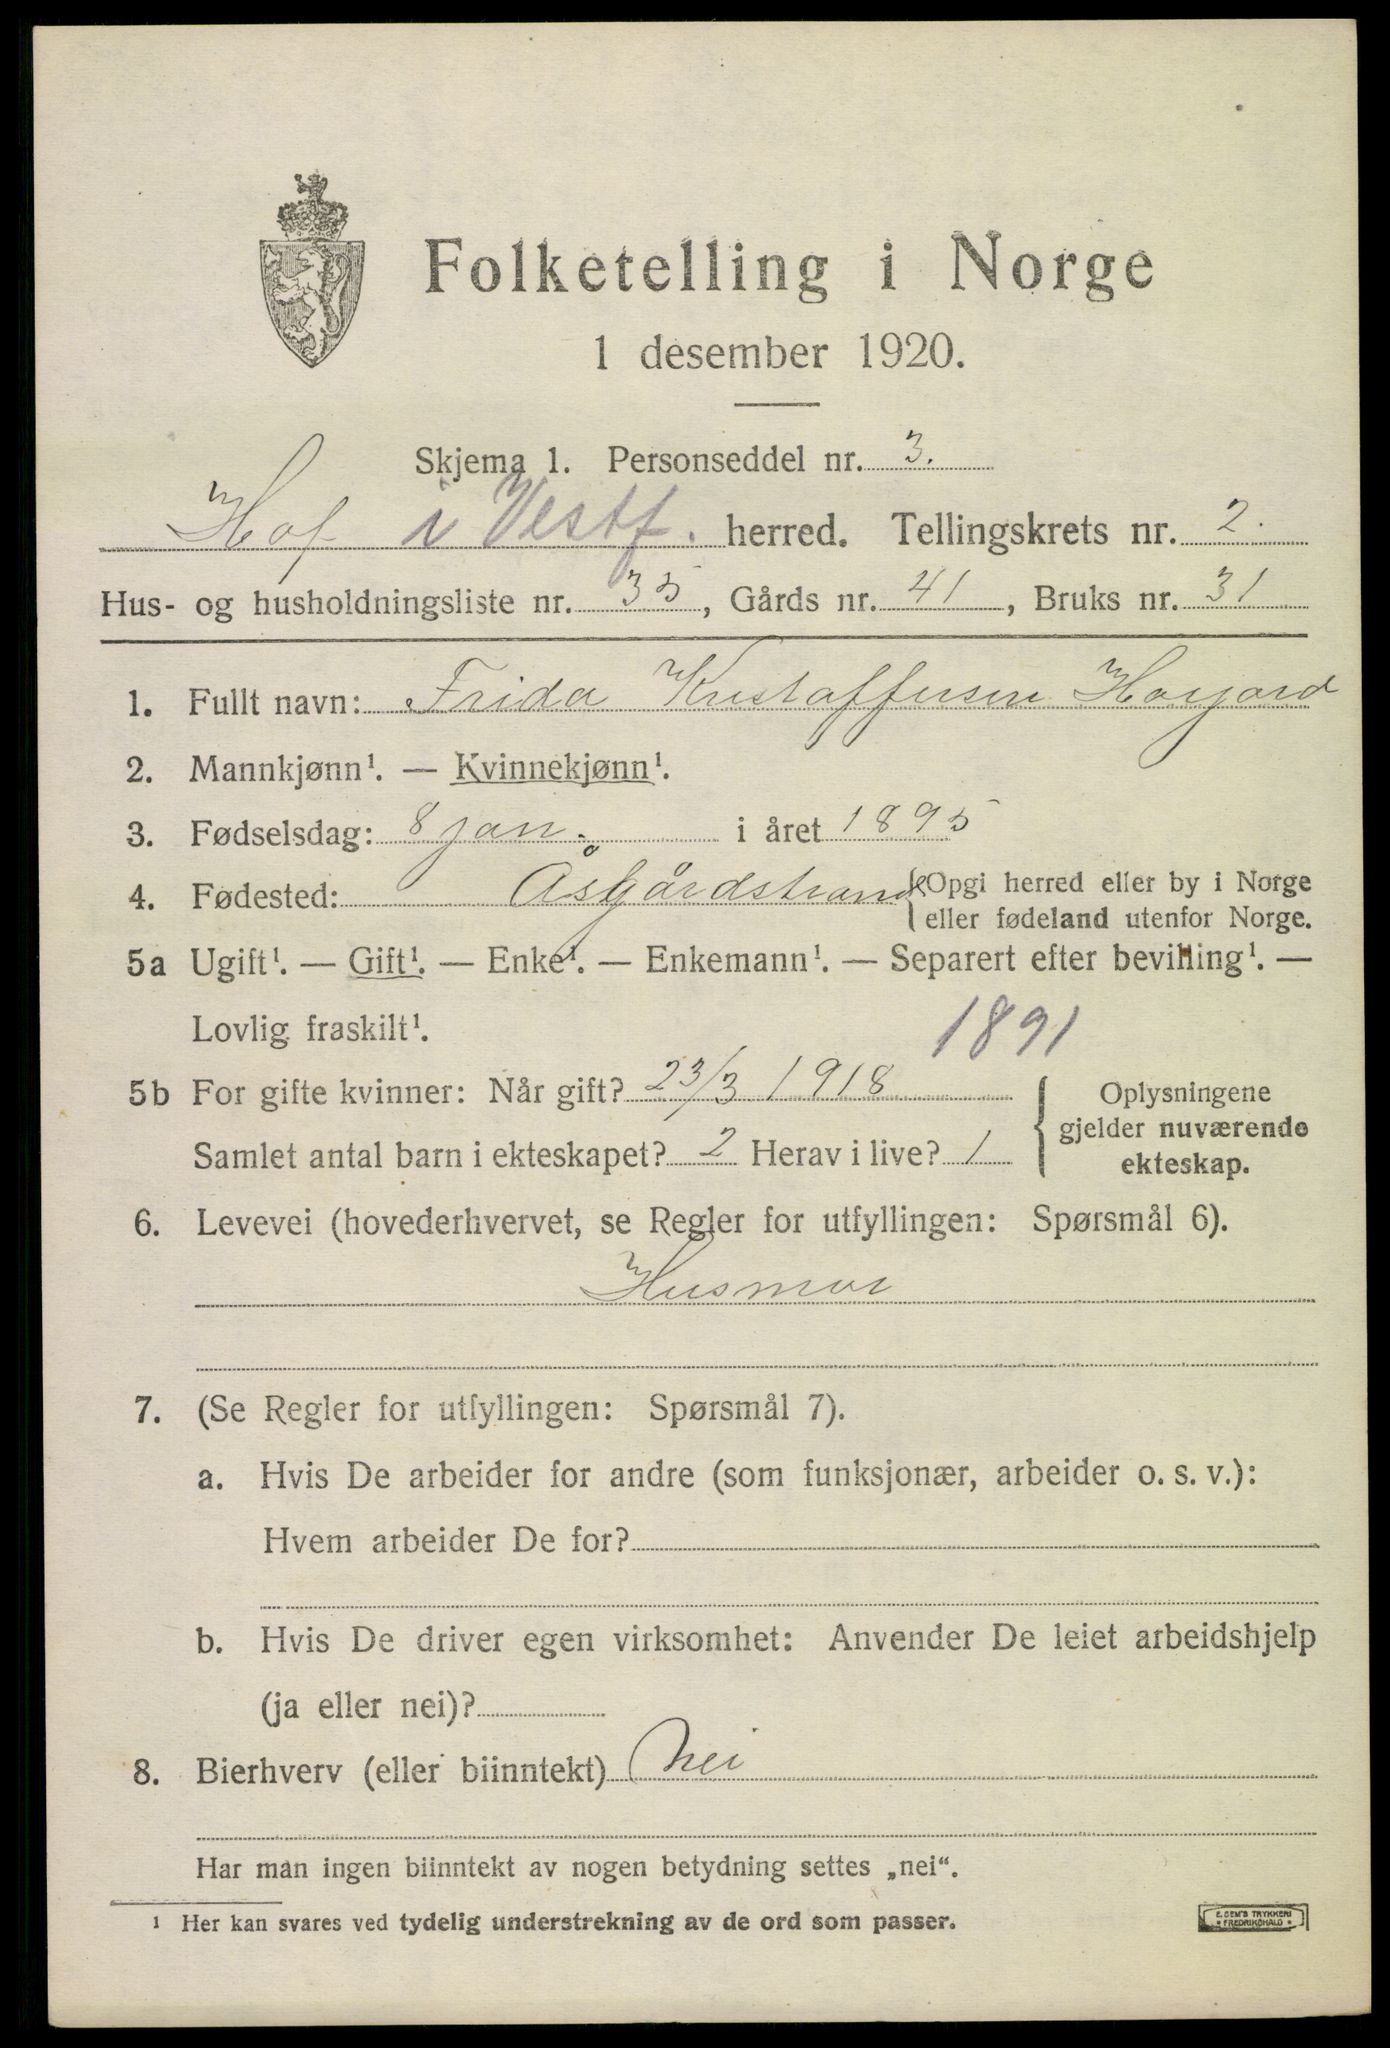 Folketelling i Norge
1 desember 1920.
Skjema 1. Personseddel nr. 3.
Hof i Vestf. herred. Tellingskrets nr. 2.
Hus- og husholdningsliste nr. 35, Gårds nr. 41, Bruks nr. 31
1. Fullt navn: Frida
2. Mannkjønn¹. — Kvinnekjønn¹.
3. Fødselsdag: 8 jan. i året 1895
4. Fødested: Åsgårdstrand {Opgi herred eller by i Norge
eller fødeland utenfor Norge.
5a Ugift¹. — Gift¹. — Enke¹. — Enkemann¹. — Separert efter bevilling¹. —
Lovlig fraskilt¹.
1891
5b For gifte kvinner: Når gift? 23/3 1918
Samlet antal barn i ekteskapet? 2 Herav i live? 1
{ Oplysningene
gjelder nuværende
ekteskap.
6. Levevei (hovederhvervet, se Regler for utfyllingen: Spørsmål 6).
Husmor
7. (Se Regler for utfyllingen: Spørsmål 7).
a. Hvis De arbeider for andre (som funksjonær, arbeider o. s. v.):
Hvem arbeider De for?
b. Hvis De driver egen virksomhet: Anvender De leiet arbeidshjelp
(ja eller nei)?
8. Bierhverv (eller biinntekt) Nei
Har man ingen biinntekt av nogen betydning settes „nei“.
¹ Her kan svares ved tydelig understrekning av de ord som passer.
E. SEM'S TRYKKERI
FREDRIKSHALD